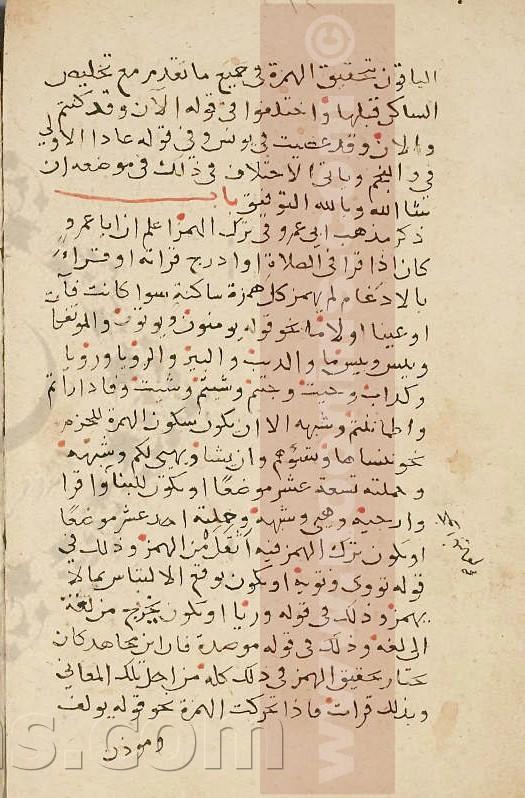 الباقون بتحقيق الهمزة في جميع ما تقدم مع تخليص
الساكن قبلها واختلفوا في قوله الآن وقد كنتم
والان وقد عصيت في يونس وفي قوله عادا الاولى
في والنجم وياتي الاختلاف في ذلك في موضعه ان
شا الله وبالله التوفيق باب
ذكر مذهب ابي عمرو في ترك الهمز اعلم ان ابا عمرو
كان اذا قرا في الصلاة او ادرج قراته او قراء
بالادغام لم يهمز كل همزة ساكنة سوا كانت فآ
او عينا او لاما نحو قوله يومنون ويوتون والموتفكا
وبيس وبيس ما والذيب والبير والرويا ورويا
وكداب وجيت وجيتم وشيتم وشيت وفاداراتم
واطماننتم وشبهه الا ان يكون سكون الهمزة للجزم
نحو ننساها وتسؤهم وان يشا ويهيى لكم وشبهه
وجملته تسعة عشر موضعا او يكون للبنآ واقرا
وارجيه وهيى وشبهه وجملته احد عشر موضعا
او يكون ترك الهمز فيه اثقل من الهمز وذلك في
قوله تووى وتويه او يكون يوقع الالتباس بما لا
يهمز وذلك في قوله وريا او يكون يخرج من لغة
الى لغة وذلك في قوله موصدة فان ابن مجاهد كان
يختار تحقيق الهمز في ذلك كله من اجل تلك المعاني
وبذلك قرات فاذا تحركت الهمزة نحو قوله يولف
وموذن
©
www.
ns.com